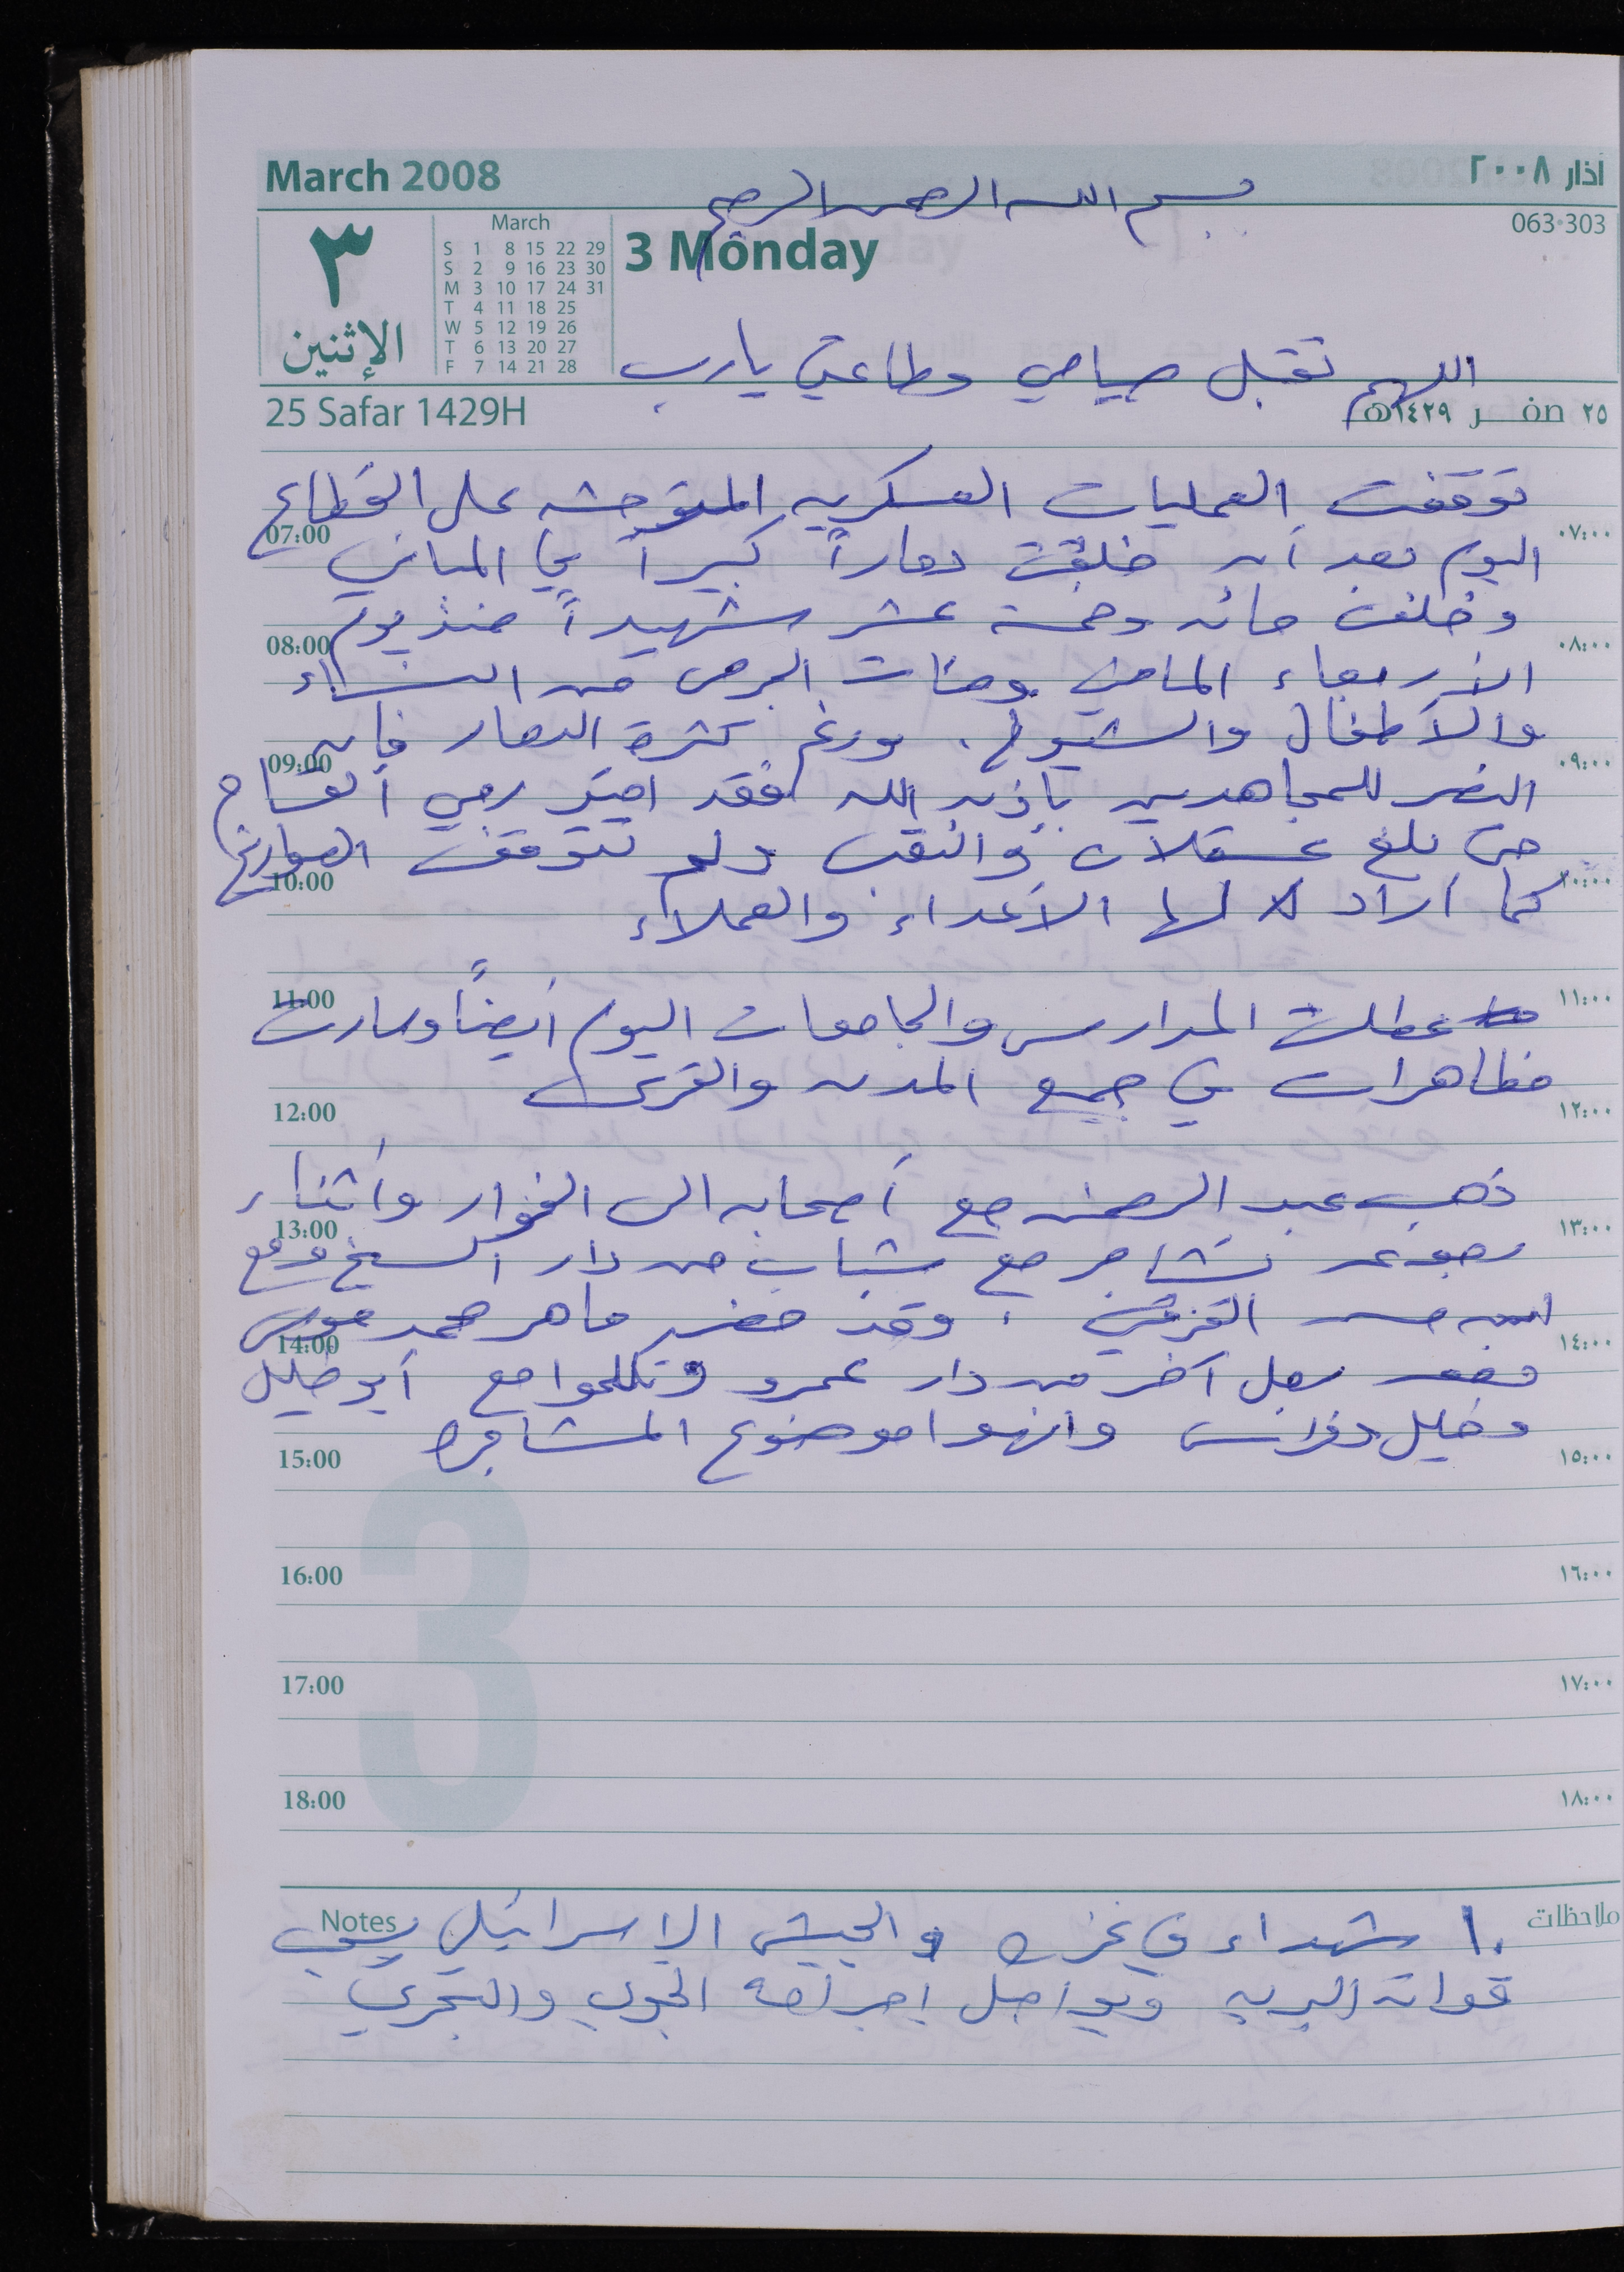 March 2008
أذار ٢٠٠٨
بسم الله الرحمن الرحيم
٣
الإثنين
March
S 1 8 15 22 29
S 2 9 16 23 30
M 3 10 17 24 31
T 4 11 18 25
W 5 12 19 26
T 6 13 20 27
F 7 14 21 28
3 Monday
063·303
اللهم تقبل صيامي وطاعتي يارب
25 Safar 1429H
٢٥ صفر ١٤٢٩هـ
توقفت العمليات العسكريه المتوحشه على القطاع
07:00 ٠٧:٠٠
اليوم بعد أن خلفت دماراً كبيراً في المباني
وخلفت مائه وخمسة عشر شهيداً منذ يوم
08:00 ٠٨:٠٠
الأربعاء الماضي ومئات الجرحى من النساء
والأطفال والشيوخ. ورغم كثرة الدمار فإن
09:00 ٠٩:٠٠
النصر للمجاهدين بإذن الله فقد امتد رمي القسام
حتى بلغ عسقلان والنقب ولم تتوقف الصواريخ
10:00 ١٠:٠٠
كما أراد لها الأعداء والعملاء
11:00 ١١:٠٠
عطلت المدارس والجامعات اليوم أيضاً وسارت
مظاهرات في جميع المدن والقرى
12:00 ١٢:٠٠
ذهب عبد الرحمن مع أصحابه الى الفوار وأثناء
13:00 ١٣:٠٠
تشاجر مع شباب من دار الشيخ ومع
وقد حضر ماهر محمد موسى
14:00 ١٤:٠٠
رجل آخر من دار عمرو وتكلموا مع أبو خليل
وخليل وفراس وانهوا موضوع المشاجره
15:00 ١٥:٠٠
3
16:00 ١٦:٠٠
17:00 ١٧:٠٠
18:00 ١٨:٠٠
Notes ملاحظات
١٠ شهداء في غزه والجيش الإسرائيلي يسحب
قواته البريه ويواصل إجرامه الجوي والبحري